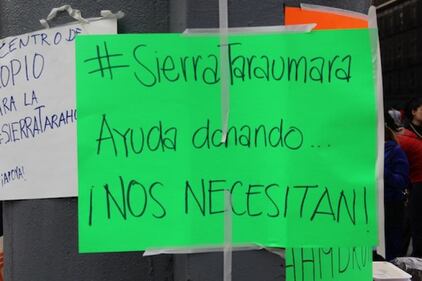 CENTRO DE
OPIO
ARA LA
#SIERRATARAHU
¡APOYA!
#SierraTaraumara
Ayuda donando...
¡NOS NECESITAN!